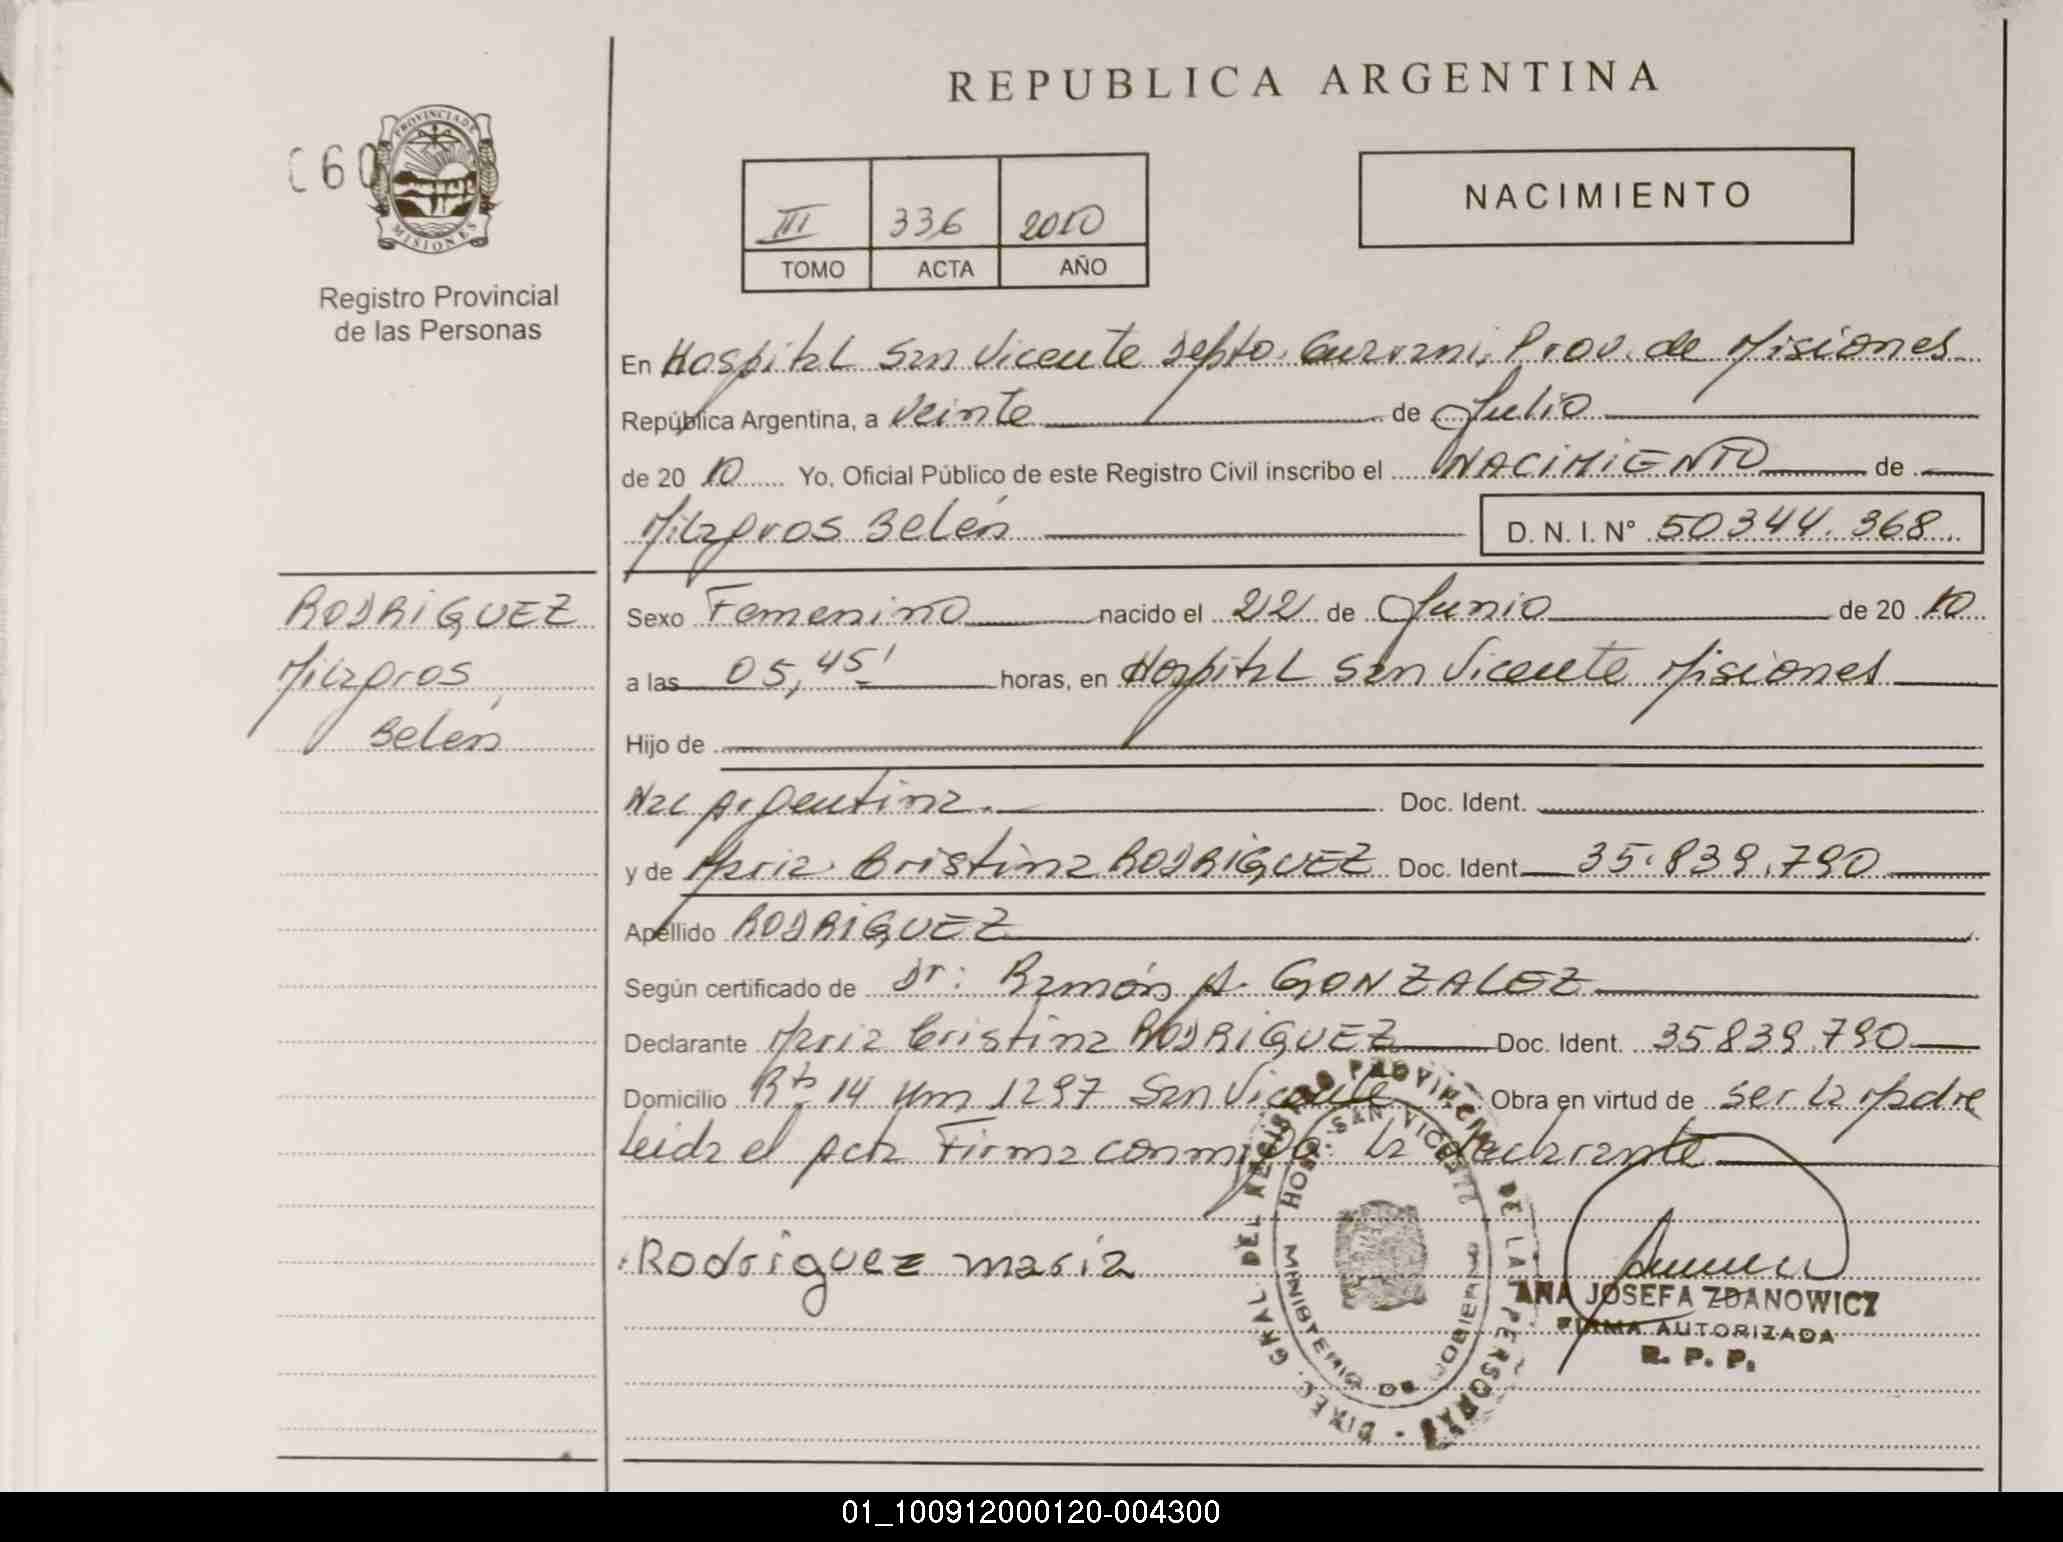 REPUBLICA ARGENTINA
C60
PROVINCIA DE
MISIONES
Registro Provincial
de las Personas
III 336 2010
TOMO ACTA AÑO
NACIMIENTO
En Hospital San Vicente Depto. Guarani, Prov. de Misiones
República Argentina, a veinte de Julio
de 2010 Yo, Oficial Público de este Registro Civil inscribo el NACIMIENTO de
Milagros Belén D. N. I. N° 50344.368
RODRIGUEZ
Milagros
Belén
Sexo Femenino nacido el 22 de Junio de 2010
a las 05,45' horas, en Hospital San Vicente Misiones
Hijo de
Nac Argentina. Doc. Ident.
y de Maria Cristina RODRIGUEZ Doc. Ident 35.839.790
Apellido RODRIGUEZ
Según certificado de Dr: Ramón A. GONZALEZ
Declarante Maria Cristina RODRIGUEZ Doc. Ident. 35839.790
Domicilio Rta 14 Km 1297 San Vicente Obra en virtud de ser la Madre
Leida el Acta Firma conmigo la declarante
Rodriguez maria
DIREC. GRAL. DEL REGISTRO PROVINCIAL DE LAS PERSONAS
HOSP. SAN VICENTE
MINISTERIO DE GOBIERNO
ANA JOSEFA ZDANOWICZ
FIRMA AUTORIZADA
R. P. P.
01_100912000120-004300